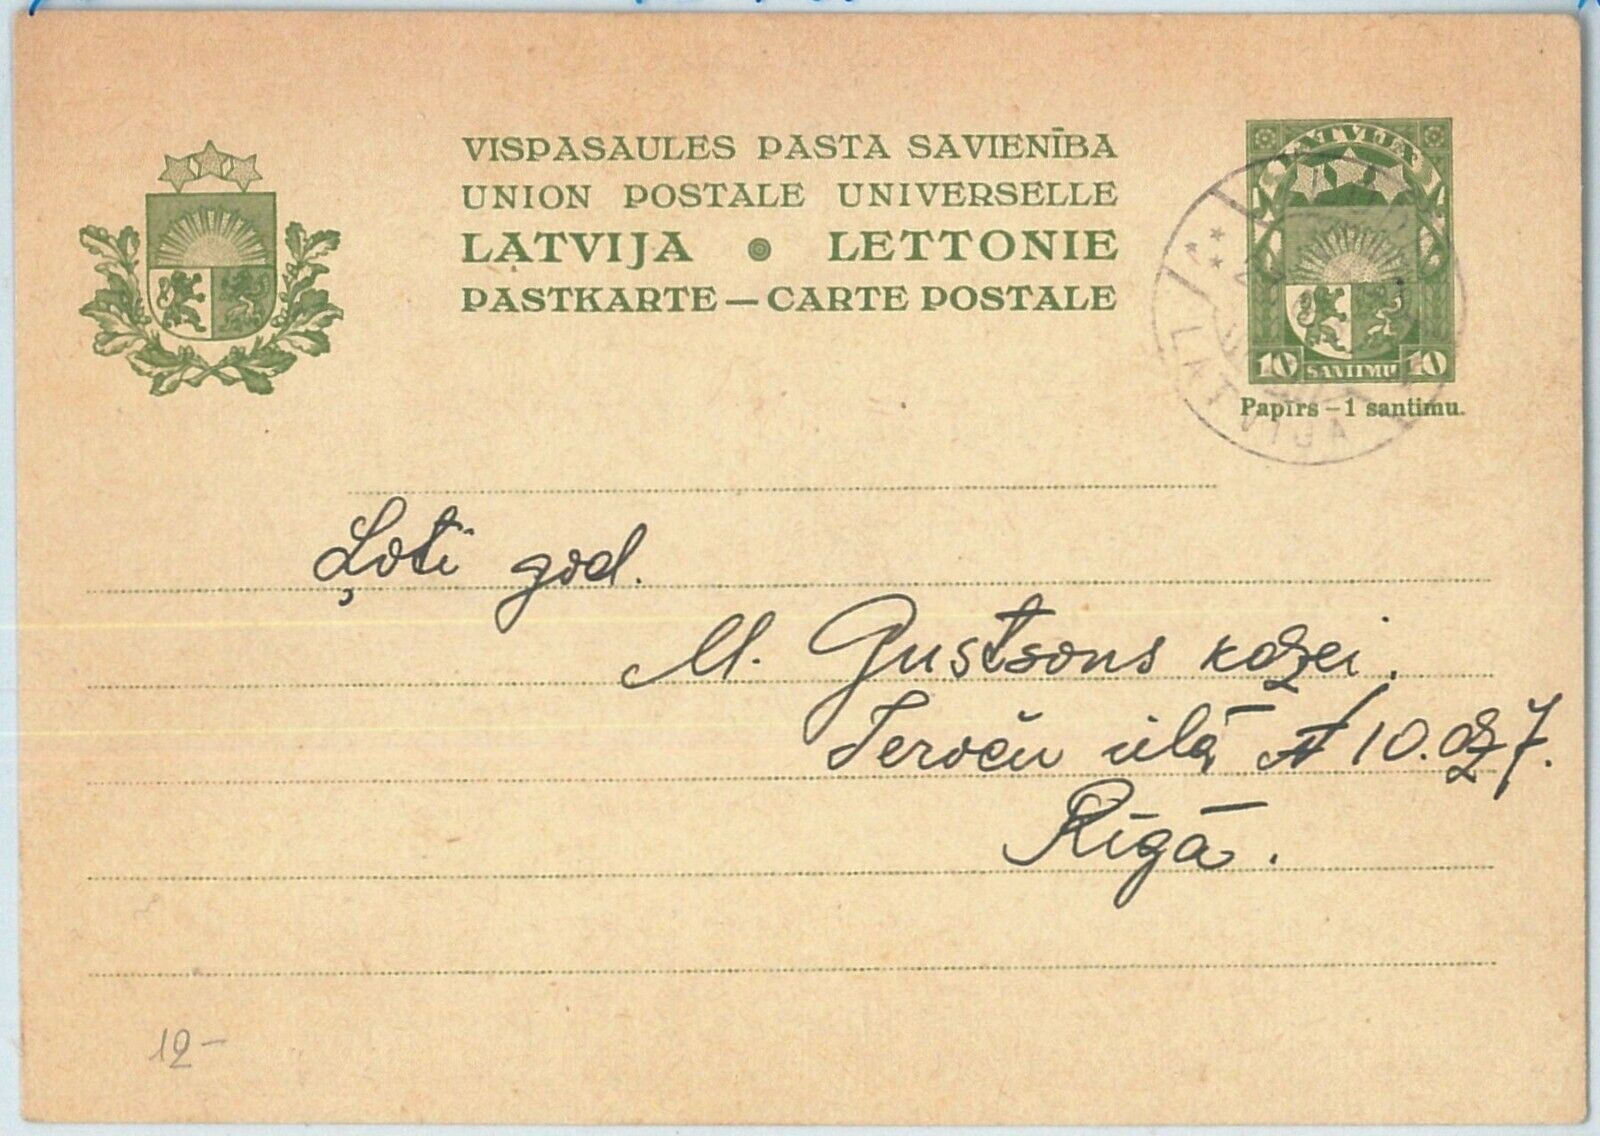 VISPASAULES PASTA SAVIENĪBA
UNION POSTALE UNIVERSELLE
LATVIJA LETTONIE
PASTKARTE — CARTE POSTALE
LATVIJA
10 SANTIMU 10
Papīrs – 1 santimu.
LATVIJA
Ļoti god.
M. Gustsons kdzei.
Ieroču ielā № 10. dz 7.
Rīgā.
12-